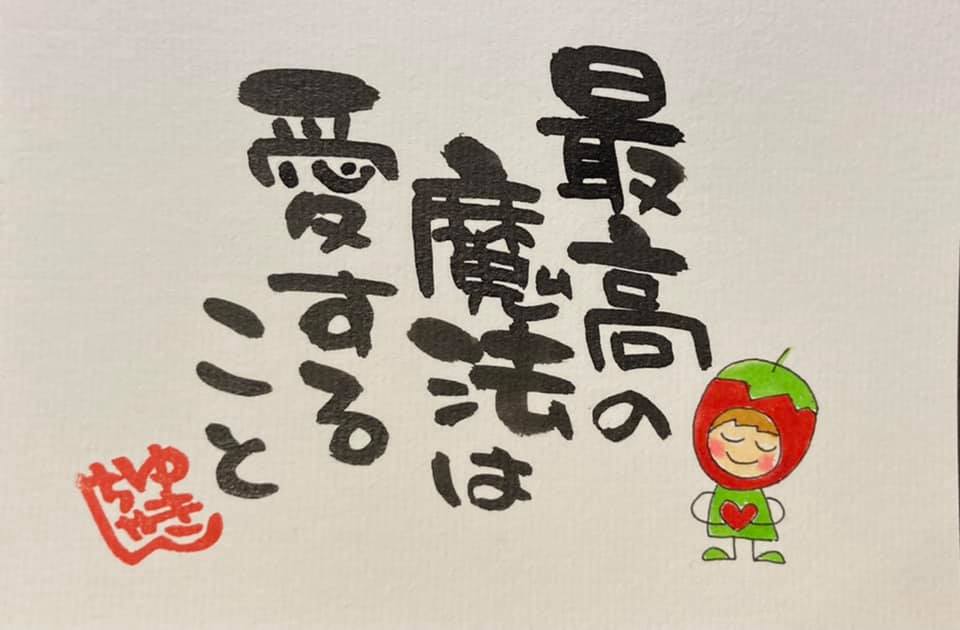 最高の
魔法は
愛する
こと
ゆき
ちゃん